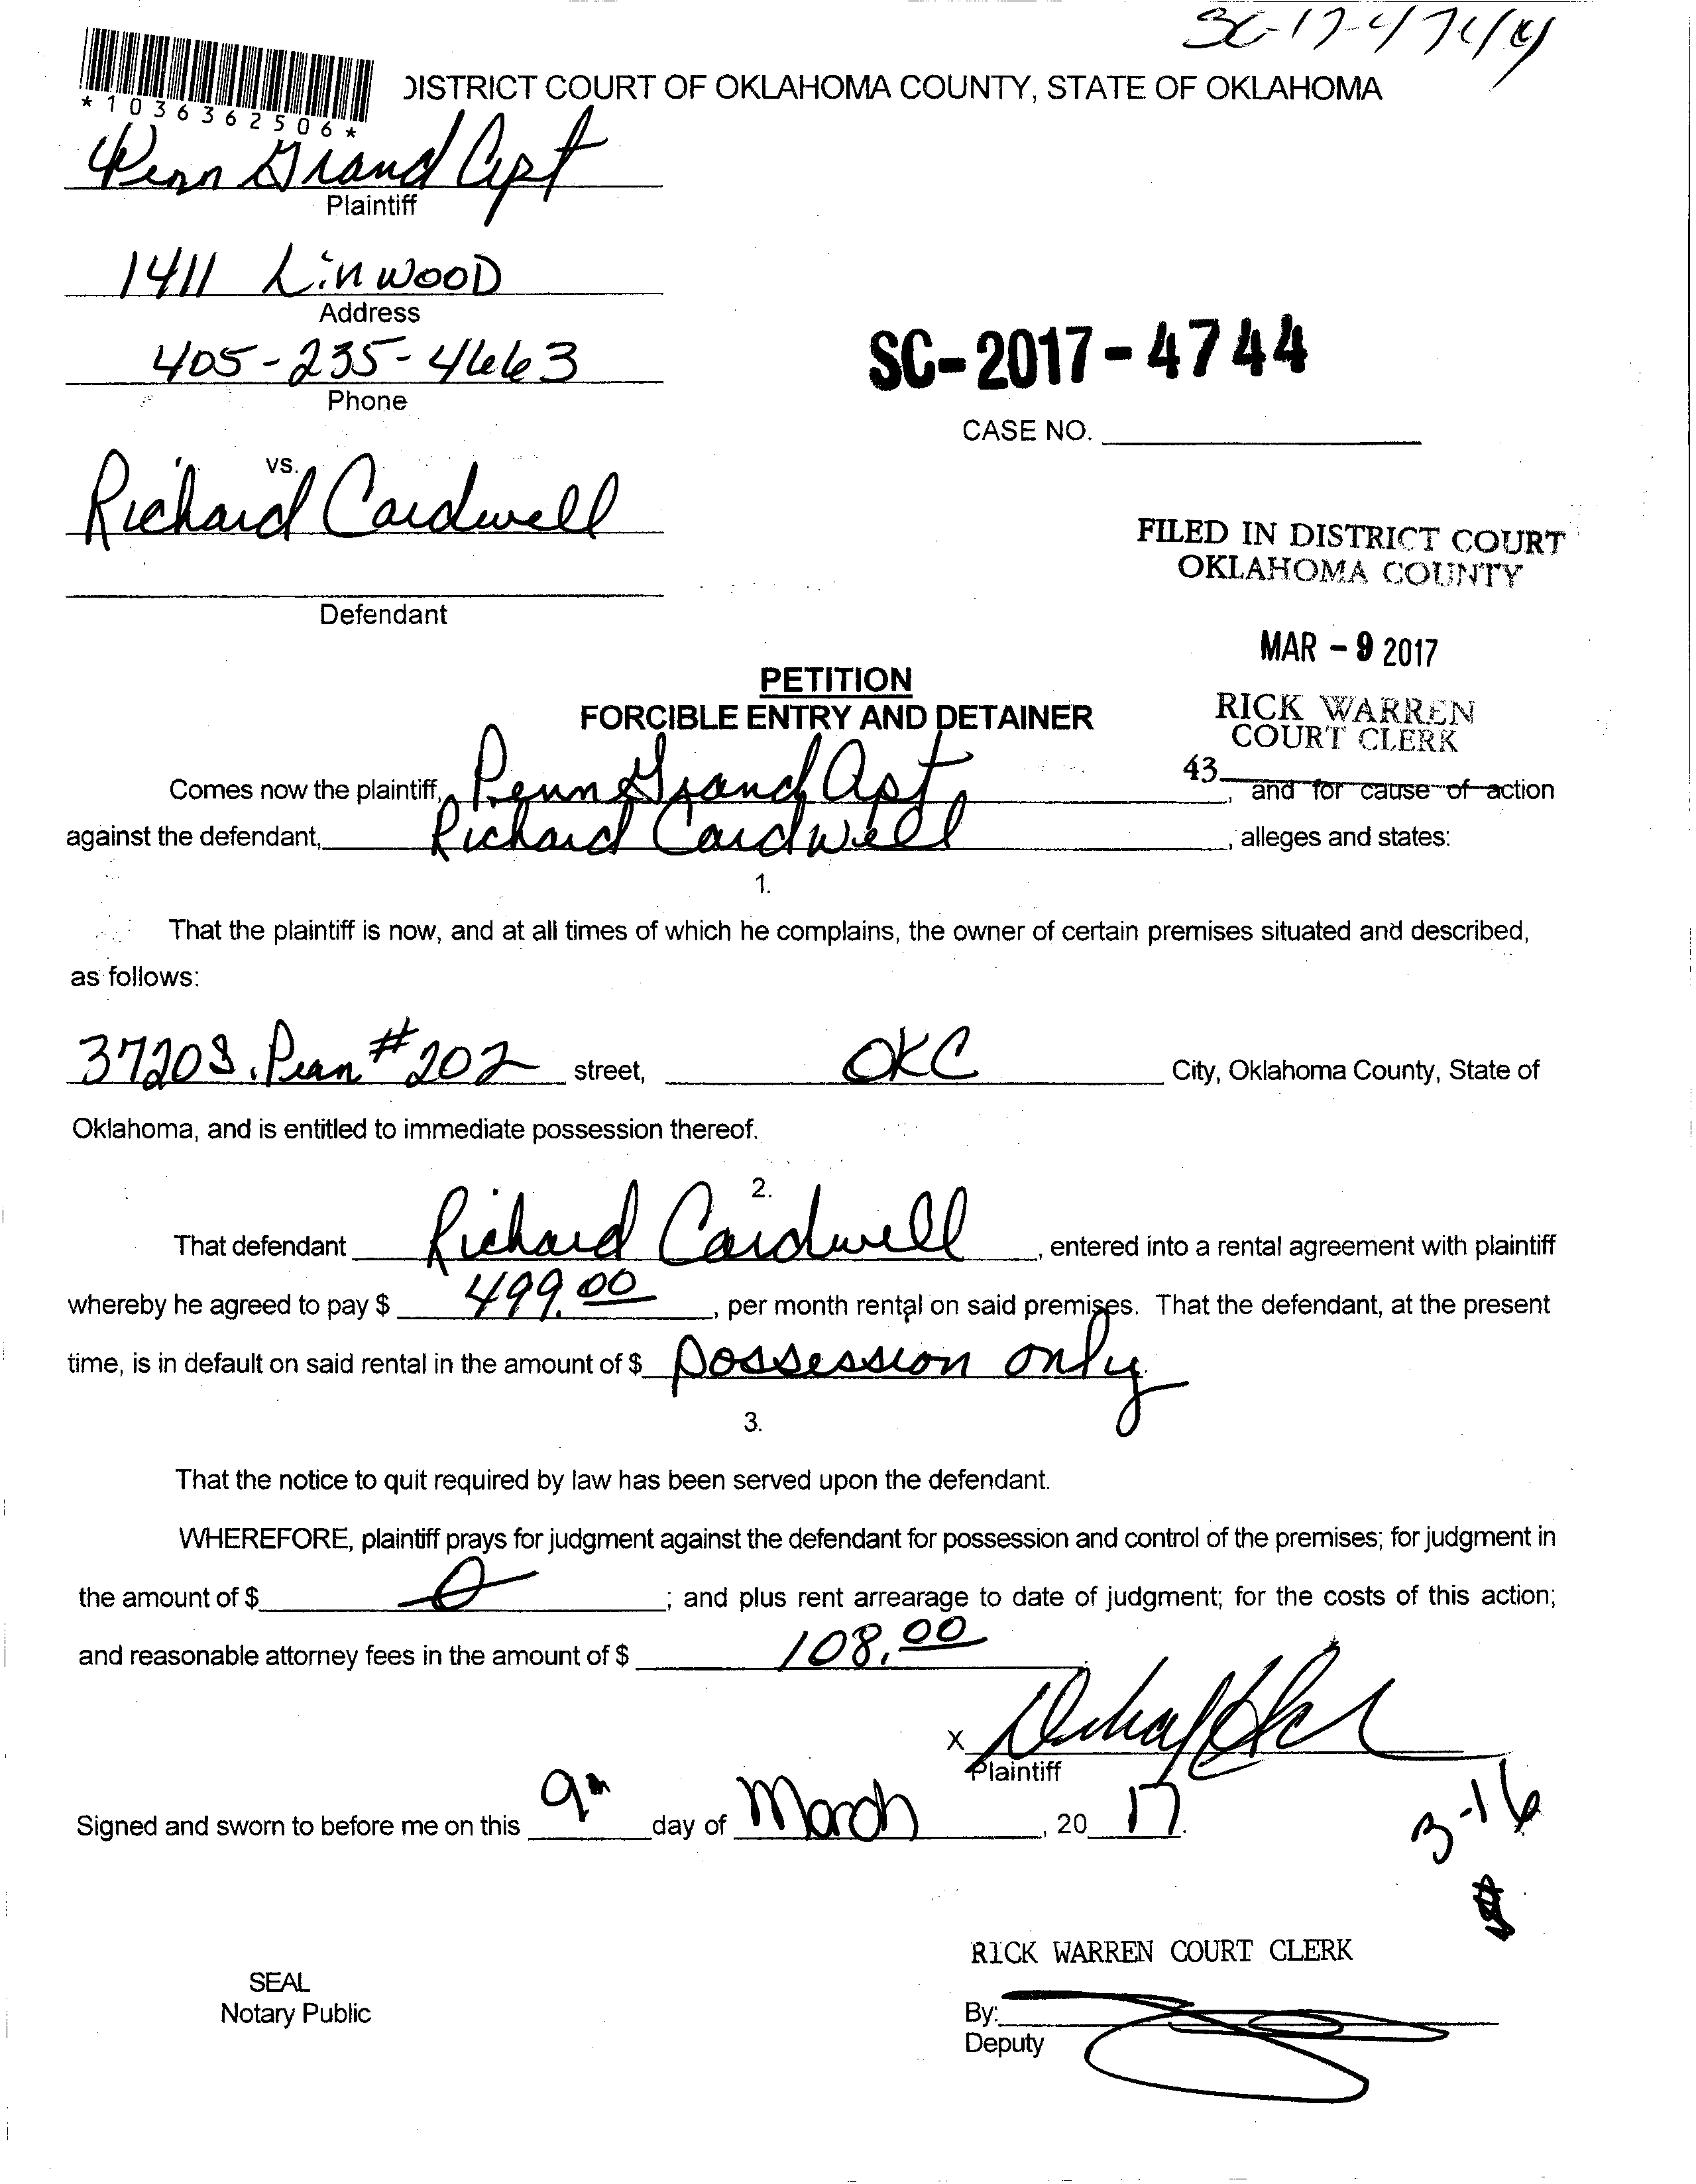 SC-17-4744
*1036362506*
DISTRICT COURT OF OKLAHOMA COUNTY, STATE OF OKLAHOMA
Penn Grand Apt
Plaintiff
1411 Linwood
Address
405-235-4663
Phone
SC-2017-4744
CASE NO.
vs.
Richard Cardwell
Defendant
FILED IN DISTRICT COURT
OKLAHOMA COUNTY
MAR - 9 2017
RICK WARREN
COURT CLERK
43
PETITION
FORCIBLE ENTRY AND DETAINER
Comes now the plaintiff, Penn Grand Apt, and for cause of action
against the defendant, Richard Cardwell, alleges and states:
1.
That the plaintiff is now, and at all times of which he complains, the owner of certain premises situated and described,
as follows:
3720 S. Penn #202 street, OKC City, Oklahoma County, State of
Oklahoma, and is entitled to immediate possession thereof.
2.
That defendant Richard Cardwell, entered into a rental agreement with plaintiff
whereby he agreed to pay $ 499.00, per month rental on said premises. That the defendant, at the present
time, is in default on said rental in the amount of $ possession only
3.
That the notice to quit required by law has been served upon the defendant.
WHEREFORE, plaintiff prays for judgment against the defendant for possession and control of the premises; for judgment in
the amount of $ 0; and plus rent arrearage to date of judgment; for the costs of this action;
and reasonable attorney fees in the amount of $ 108.00
X
Plaintiff
Signed and sworn to before me on this 9th day of March, 20 17.
3-16
RICK WARREN COURT CLERK
SEAL
Notary Public
By:
Deputy